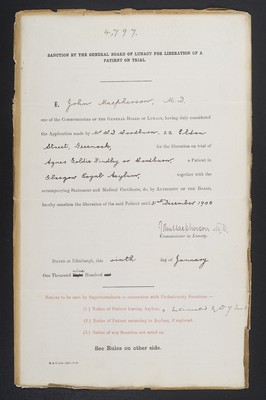 4,797.
SANCTION BY THE GENERAL BOARD OF LUNACY FOR LIBERATION OF A
PATIENT ON TRIAL
I, John Macpherson, M.D.
one of the COMMISSIONERS OF THE GENERAL BOARD OF LUNACY, having duly considered
the Application made by Mr W. D. Woodrow, 22 Eldon
Street, Greenock, for the liberation on trial of
Agnes Goldie Findlay or Woodrow, a Patient in
Glasgow Royal Asylum, together with the
accompanying Statement and Medical Certificate, do, by AUTHORITY OF THE BOARD,
hereby sanction the liberation of the said Patient until 31st December 1900
John Macpherson M.D.
Commissioner in Lunacy.
DATED at Edinburgh, this ninth day of January
One Thousand Hundred
Notices to be sent by Superintendents in connection with Probationary Sanctions:—
(1.) Notice of Patient leaving Asylum.
(2.) Notice of Patient returning to Asylum, if replaced.
(3.) Notice of any Sanction not acted on.
See Rules on other side.